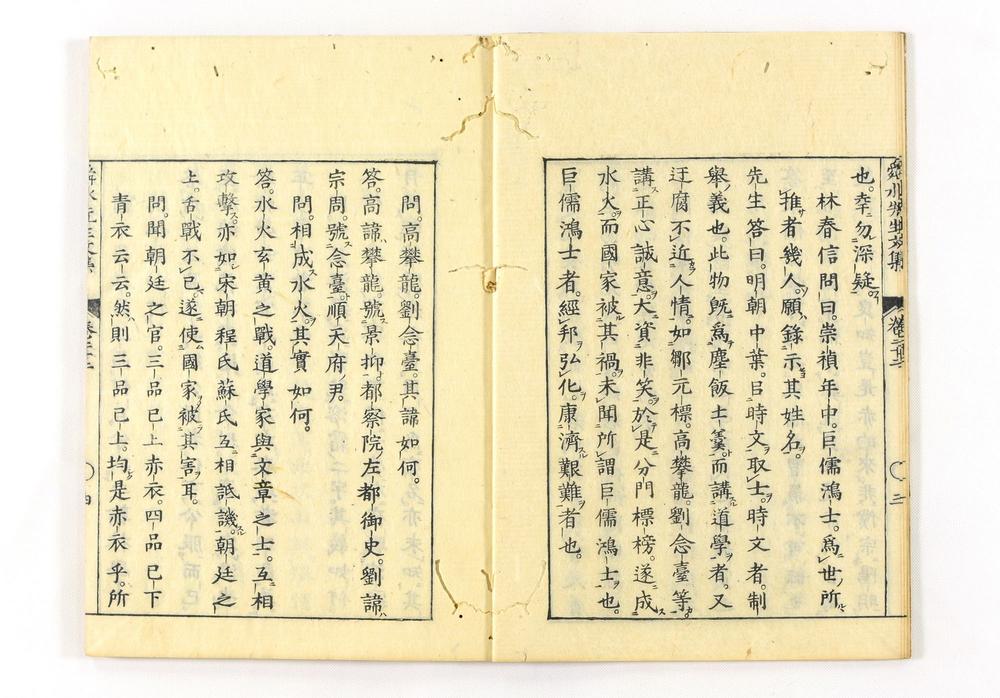 也。幸勿深疑。
林春信問曰。崇禎年中。巨儒鴻士。爲世所
推者幾人。願錄示其姓名。
先生答曰。明朝中葉。㠯時文取士。時文者。制
舉義也。此物旣爲塵飯土羹。而講道學者。又
迂腐不近人情。如鄒元標。高攀龍。劉念臺等。
講正心誠意。大資非笑。於是分門標榜。遂成
水火。而國家被其禍。未聞所謂巨儒鴻士也。
巨儒鴻士者。經邦弘化。康濟艱難者也。
問。高攀龍。劉念臺。其諱如何。
答。高諱攀龍。號景抑。都察院左都御史。劉諱
宗周。號念臺。順天府尹。
問。相成水火。其實如何。
答。水火玄黃之戰。道學家與文章之士。互相
攻擊。亦如宋朝程氏蘇氏互相詆譏。朝廷之
上。舌戰不已。遂使國家被其害耳。
問。聞朝廷之官。三品已上赤衣。四品已下
青衣云云。然則三品已上。均是赤衣乎。所